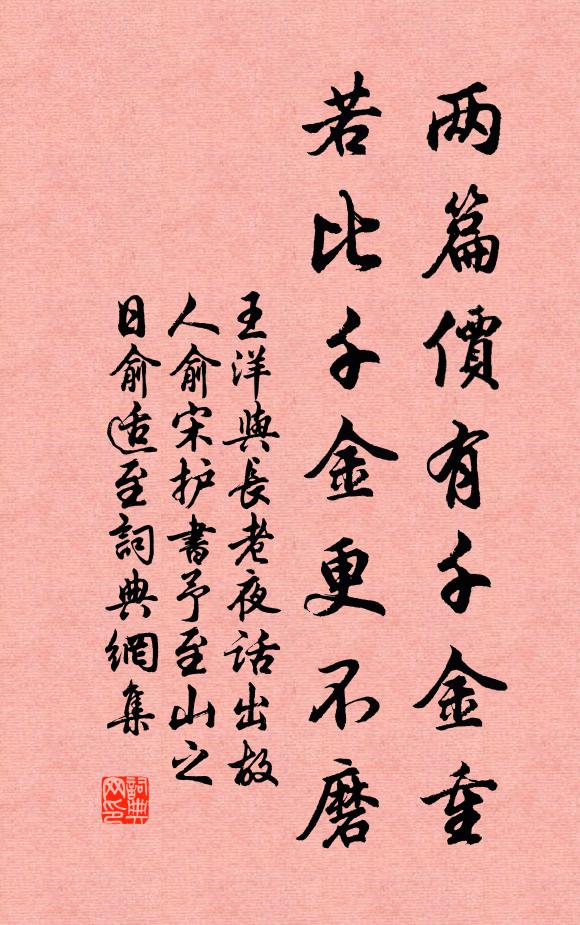 两篇價有千金重
若比千金更不磨
王洋與長老夜話出故
人俞宋护書予至山之
日俞适至詞典網集
詞典网印